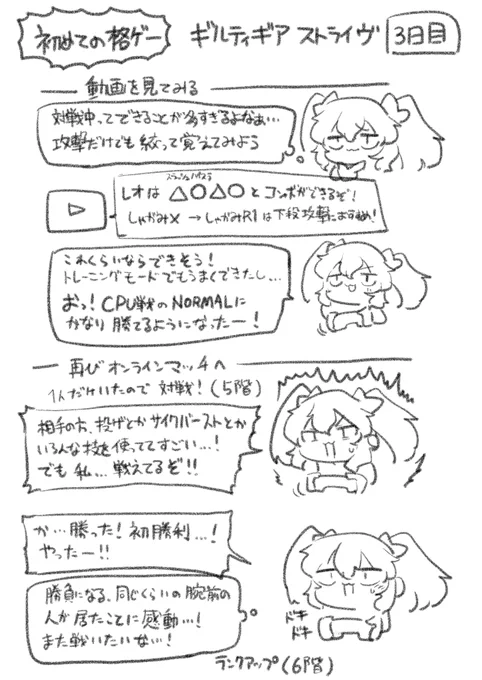 初めての格ゲー ギルティギア ストライヴ 3日目
動画を見てみる
対戦中ってできることが多すぎるよなぁ…
攻撃だけでも絞って覚えてみよう
スラッシュ ハイスラ
レオは △○△○と コンボができるぞ!
しゃがみ× → しゃがみR1は下段攻撃におすすめ!
これくらいならできそう!
トレーニングモードでもうまくできたし…
おっ! CPU戦のNORMALに
かなり勝てるようになったー!
再びオンラインマッチへ
1人だけいたので 対戦! (5階)
相手の方、投げとかサイクバーストとか
いろんな技を使っててすごい…!
でも 私… 戦えてるぞ!!
か…勝った! 初勝利…!
やったー!!
勝負になる、同じくらいの腕前の
人が居たことに感動…!
また戦いたいな…!
ドキ
ドキ
ランクアップ(6階)